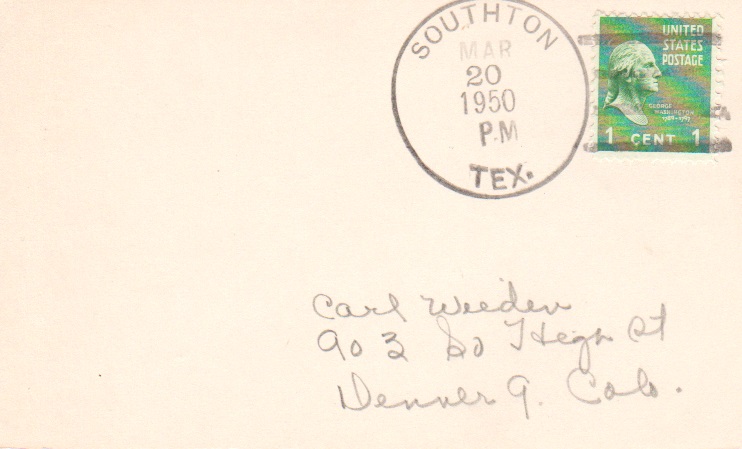 SOUTHTON
MAR
20
1950
PM
TEX.
UNITED
STATES
POSTAGE
GEORGE
WASHINGTON
1789-1797
1 CENT 1
Carl Weeden
903 So High St
Denver 9. Colo.